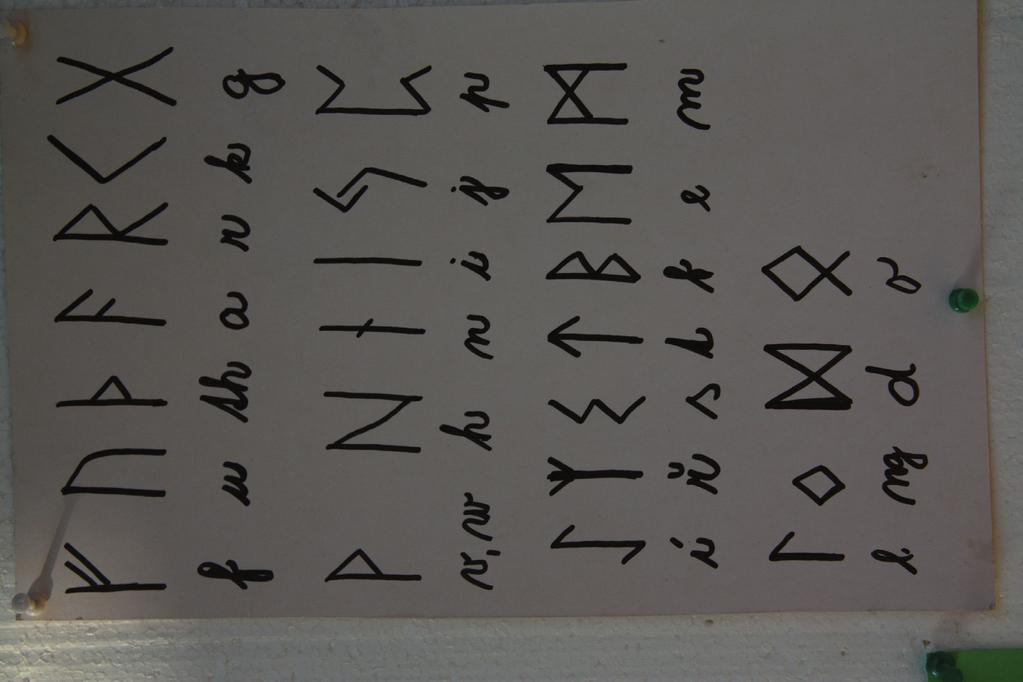 ᚠ ᚢ ᚦ ᚨ ᚱ ᚲ ᚷ
f u th a r k g
ᚹ ᚺ ᚾ ᛁ ᛃ ᛈ
v, w h n i j p
ᛇ ᛉ ᛊ ᛏ ᛒ ᛖ ᛗ
i ř s t b e m
ᛚ ᛜ ᛞ ᛟ
l ng d o